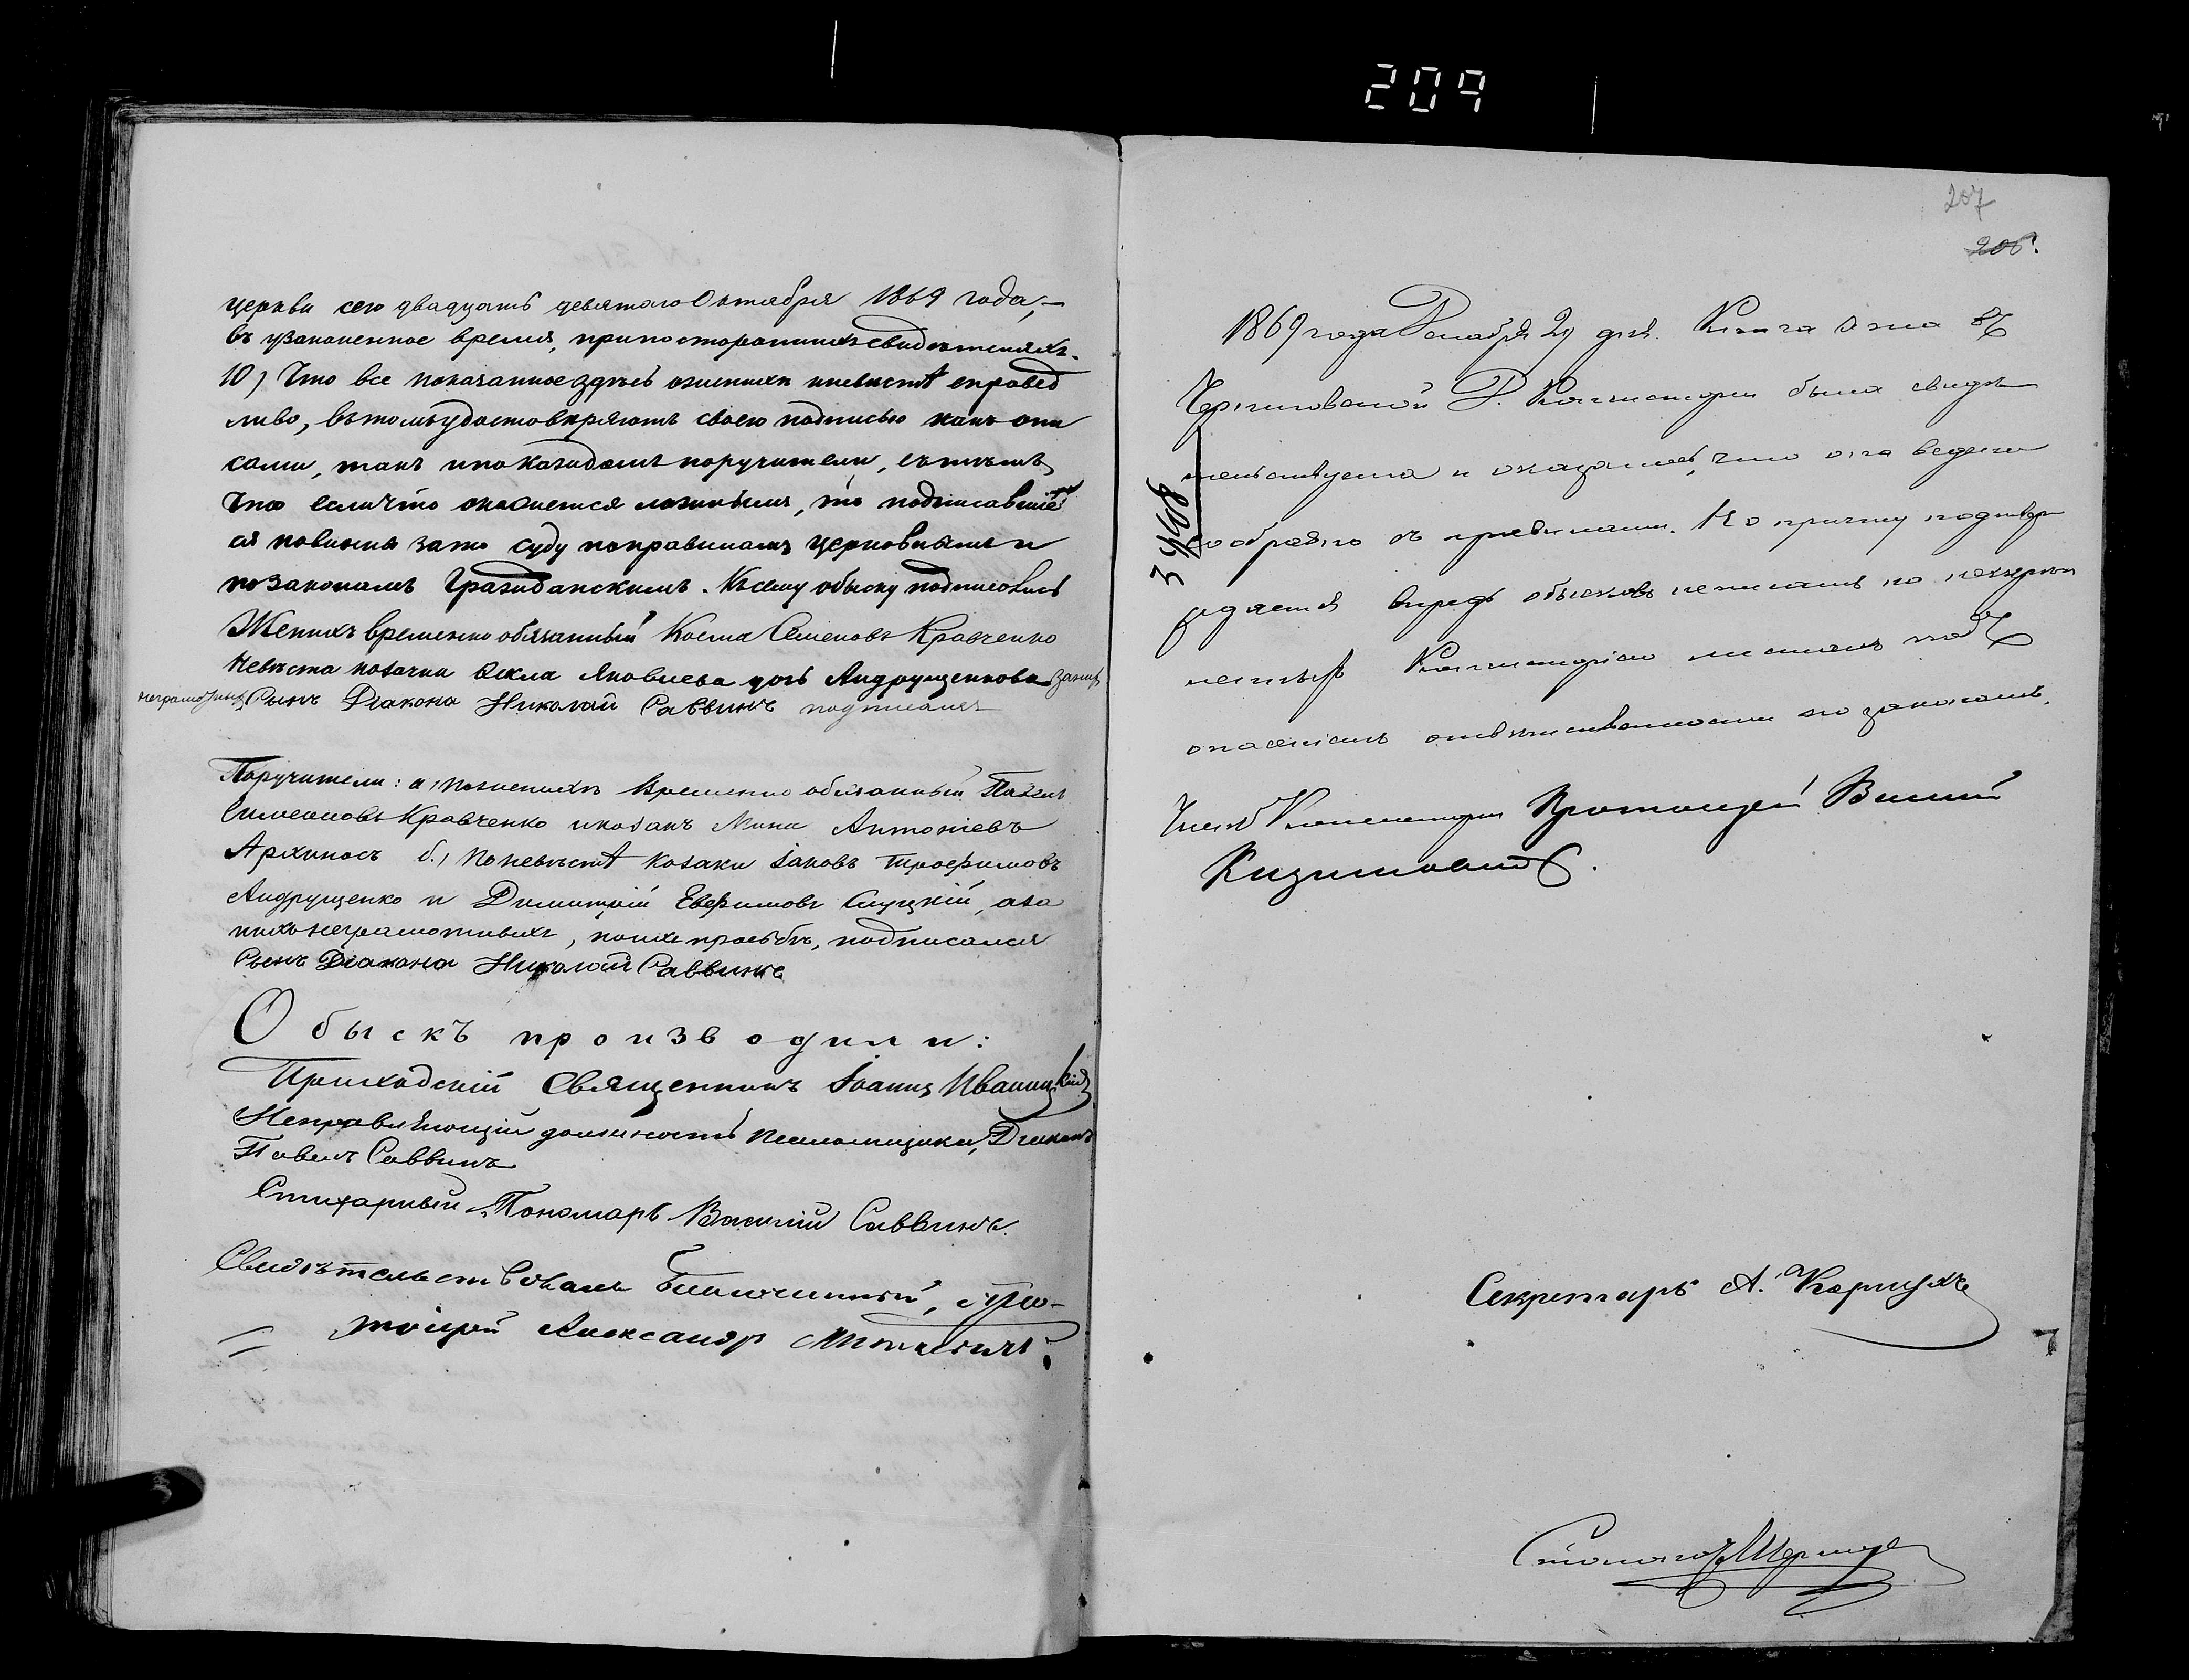 209
церкви сего двадцать девятаго Октября 1869 года,—
въ узаконенное время, при постороннихъ свидѣтеляхъ.
10) Что все показанное здѣсь о женихѣ и невѣстѣ справед
ливо, въ томъ удостовѣряютъ своею подписью какъ они
сами, такъ и по каждомъ поручители, съ тѣмъ,
что если что окажется ложнымъ, то подписавшіе
ся повинны за то суду по правиламъ церковнымъ и
по законамъ Гражданскимъ. Къ сему обыску подписались
Женихъ временно обязанный Косма Семеновъ Кравченко
Невѣста козачка Ѳекла Яковлева дочь Андрущенкова за нихъ
неграмотныхъ Сынъ Діакона Николай Саввинъ подписался
Поручители: а) по женихѣ временно обязанный Павелъ
Симеоновъ Кравченко и козакъ Мина Антоніевъ
б.) По невѣстѣ козаки Іаковъ Трофимовъ
Андрущенко и Димитрій Евфимовъ а за
нихъ неграмотныхъ, по ихъ просьбѣ, подписался
Сынъ Діакона Николай Саввинъ
Обыскъ производили:
Приходскій Священникъ Іоаннъ Иваницкій
Исправляющій должность Псаломщика, Діаконъ
Павелъ Саввинъ
Стихарный Пономарь Василій Саввинъ.
Свидѣтельствовалъ Благочинный, Про-
тоіерей Александръ
207
206.
1869 года Декабря 29 дня. Книга эта въ
Черниговской Д. Консисторіи была свидѣ
тельствуема и оказалось, что она ведена
сообразно съ правилами. Но причту подтвер
ждается впредь обысковъ не писать по
Консисторіею листамъ подъ
опасеніемъ отвѣтственности по законамъ.
Членъ Консисторіи Протоіерей
Секретарь А.